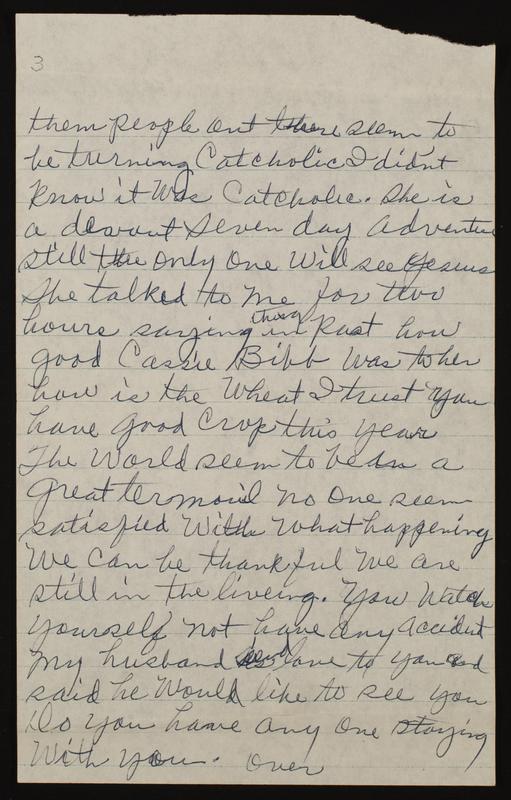 3
them people out there seem to
be turning Catcholic I didn't
know it Was Catcholic. She is
a devout Seven day Adventure
still the only One Will see Jesus
She talked to me for two
hours saying those in Past how
good Cassie Bibb Was to her
how is the Wheat I trust you
have good Crop this year
The World seem to be in a
great termoil no One seem
satisfied With What happening
We can be thankful We are
still in the liveing. You Watch
yourself not have any accident
My husband send love to you and
said he Would like to see you
Do you have any One staying
With you. Over